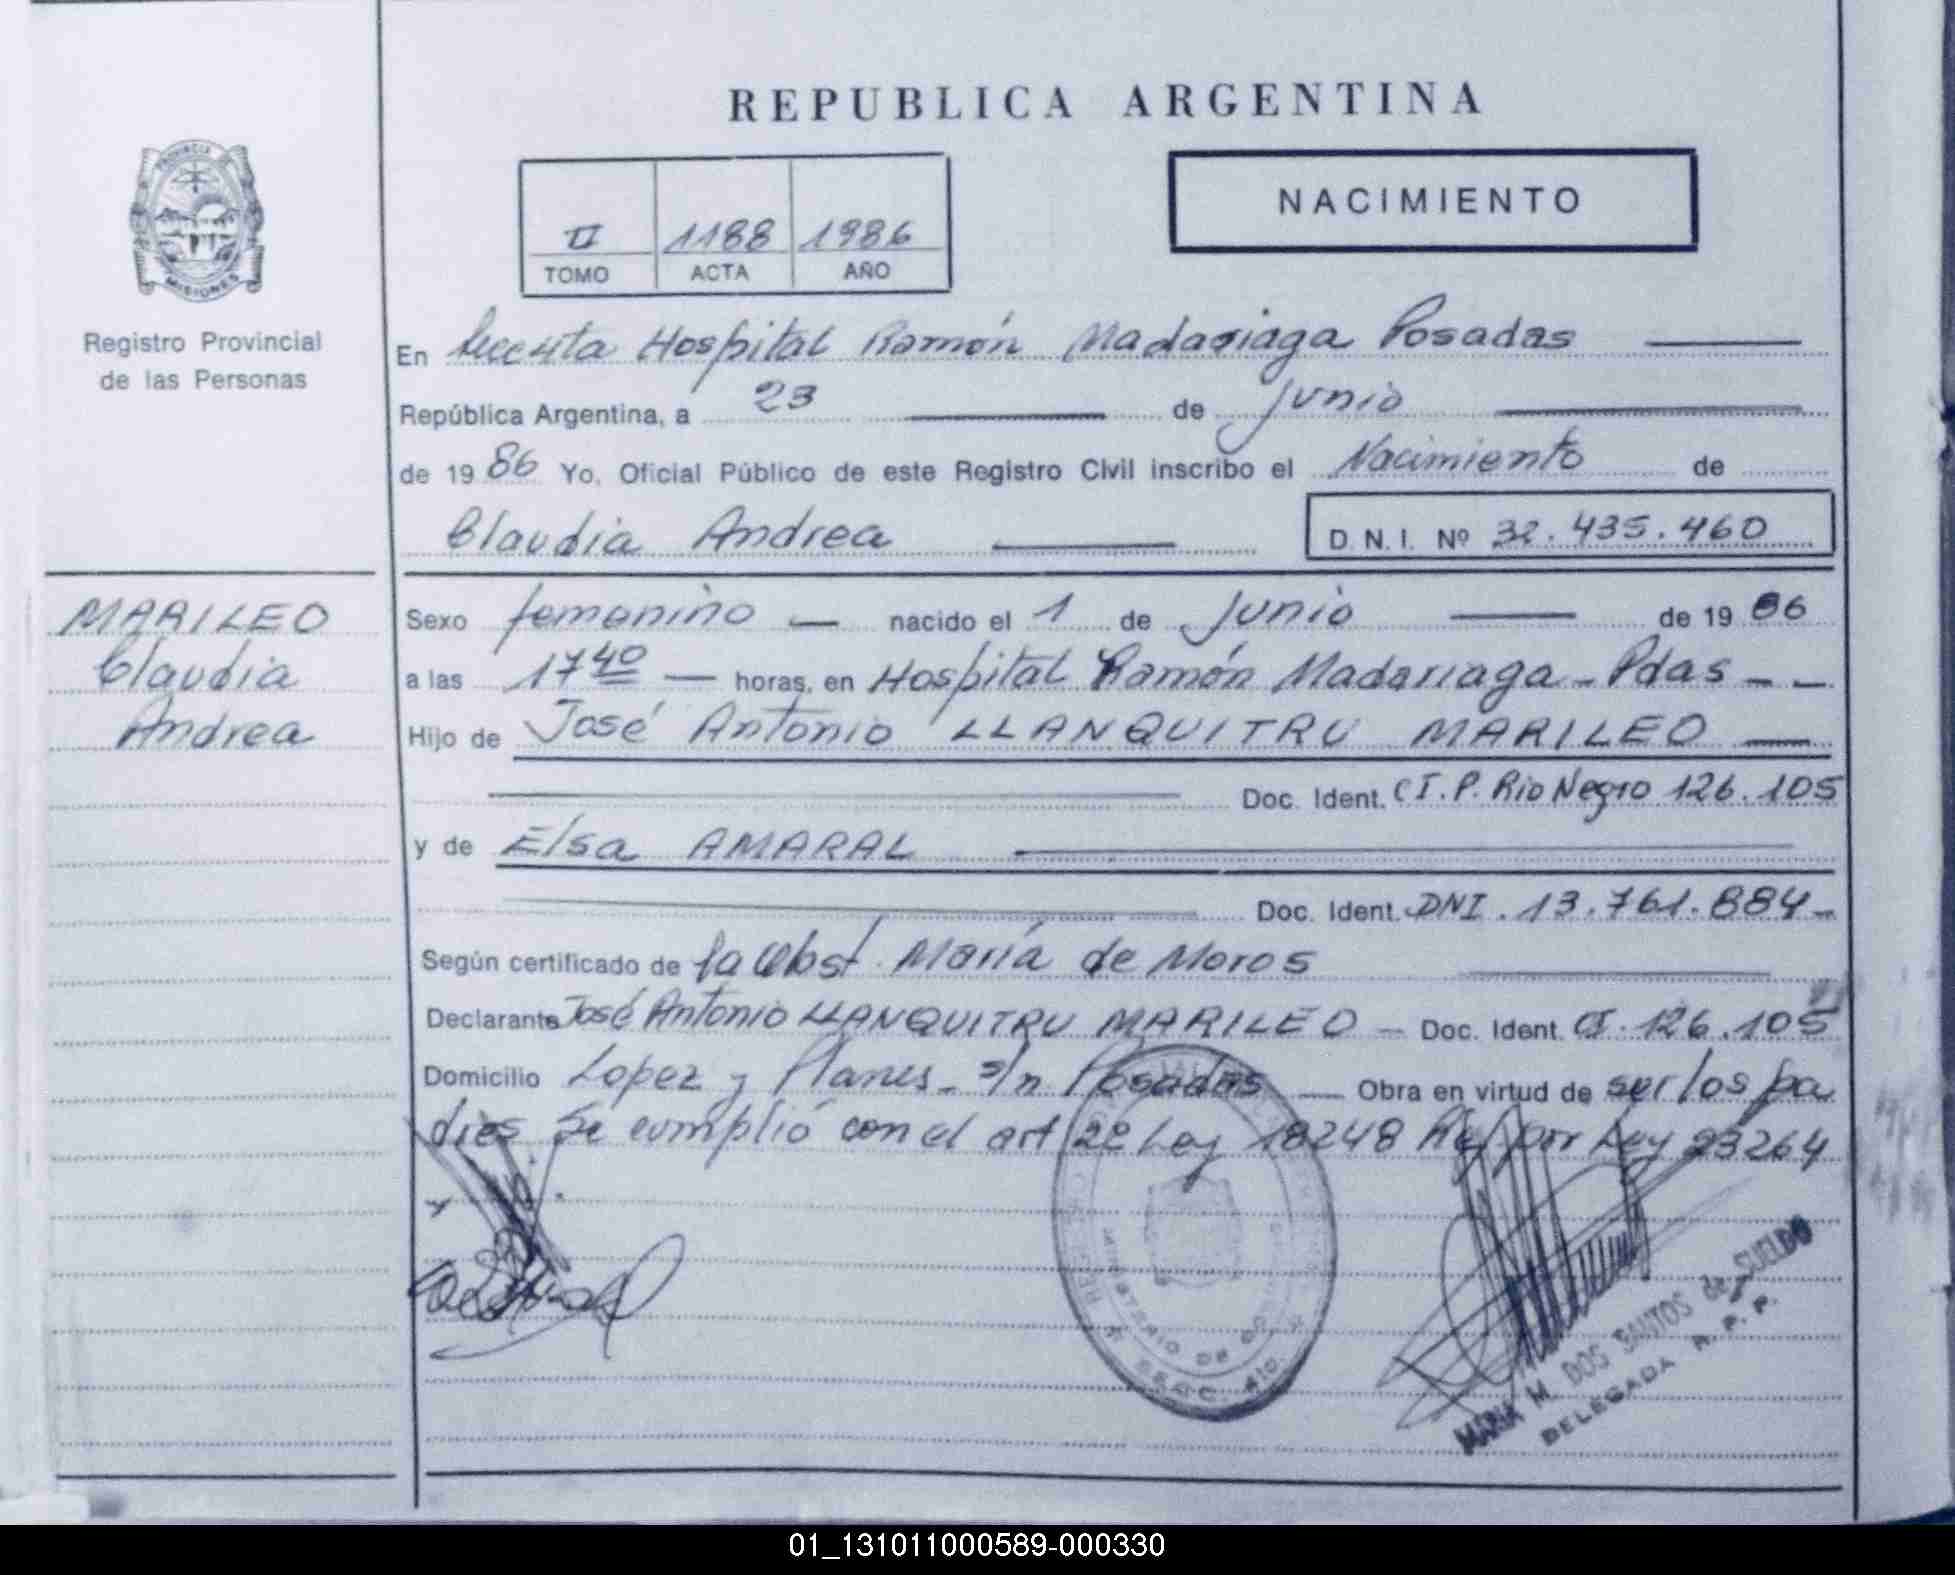 REPUBLICA ARGENTINA
NACIMIENTO
II 1188 1986
TOMO ACTA AÑO
PROVINCIA DE
MISIONES
Registro Provincial
de las Personas
En Hospital Ramón Madariaga Posadas
República Argentina, a 23 de Junio
de 1986 Yo, Oficial Público de este Registro Civil inscribo el Nacimiento de
Claudia Andrea D.N.I. Nº 32.435.460
MARILEO
Claudia
Andrea
Sexo femenino nacido el 1 de Junio de 1986
a las 17 40 horas, en Hospital Ramón Madariaga - Pdas - -
Hijo de José Antonio LLANQUITRU MARILEO
Doc. Ident. C I. P. Rio Negro 126.105
y de Elsa AMARAL
Doc. Ident. DNI. 13.761.884-
Según certificado de María de Moros
Declarante José Antonio LLANQUITRU MARILEO - Doc. Ident. CI. 126.105
Domicilio Lopez y Planes - s/n Posadas - Obra en virtud de ser los pa
dres Se cumplió con el art 2º Ley 18248 Ref por Ley 23264
MINISTERIO DE GOBIERNO
MARIA M. DOS SANTOS de SUELDO
DELEGADA R. P. P.
01_131011000589-000330